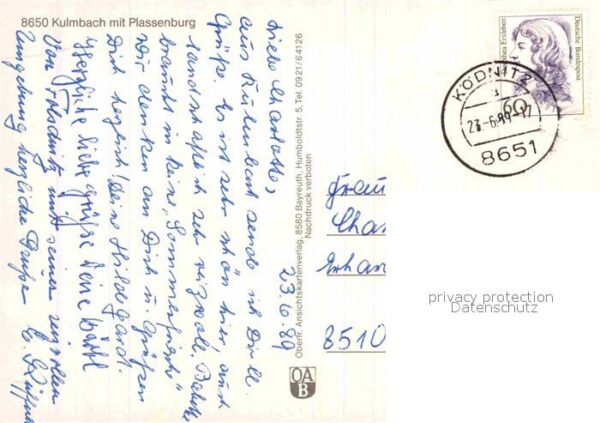 8650 Kulmbach mit Plassenburg
23.6.89
Liebe Charlotte,
aus Kulmbach sende ich Dir ll.
Grüße. Es ist sehr schön hier auch
landschaftlich sehr reizvoll.
braucht in keine „Sommerfrische"
Wir denken an Dich u. grüßen
Dich herzlich! Deine Hildegard.
Herzliche liebe Grüße Deine
Von und seiner reizvollen
Umgebung herzliche Grüße
Oberfr. Ansichtskartenverlag, 8580 Bayreuth, Humboldtstr. 5, Tel. 0921/64126
Nachdruck verboten
OA
B
Deutsche Bundespost
60
KÖDNITZ
23.-6.89-17
8651
Frau
Cha
8510
privacy protection
Datenschutz